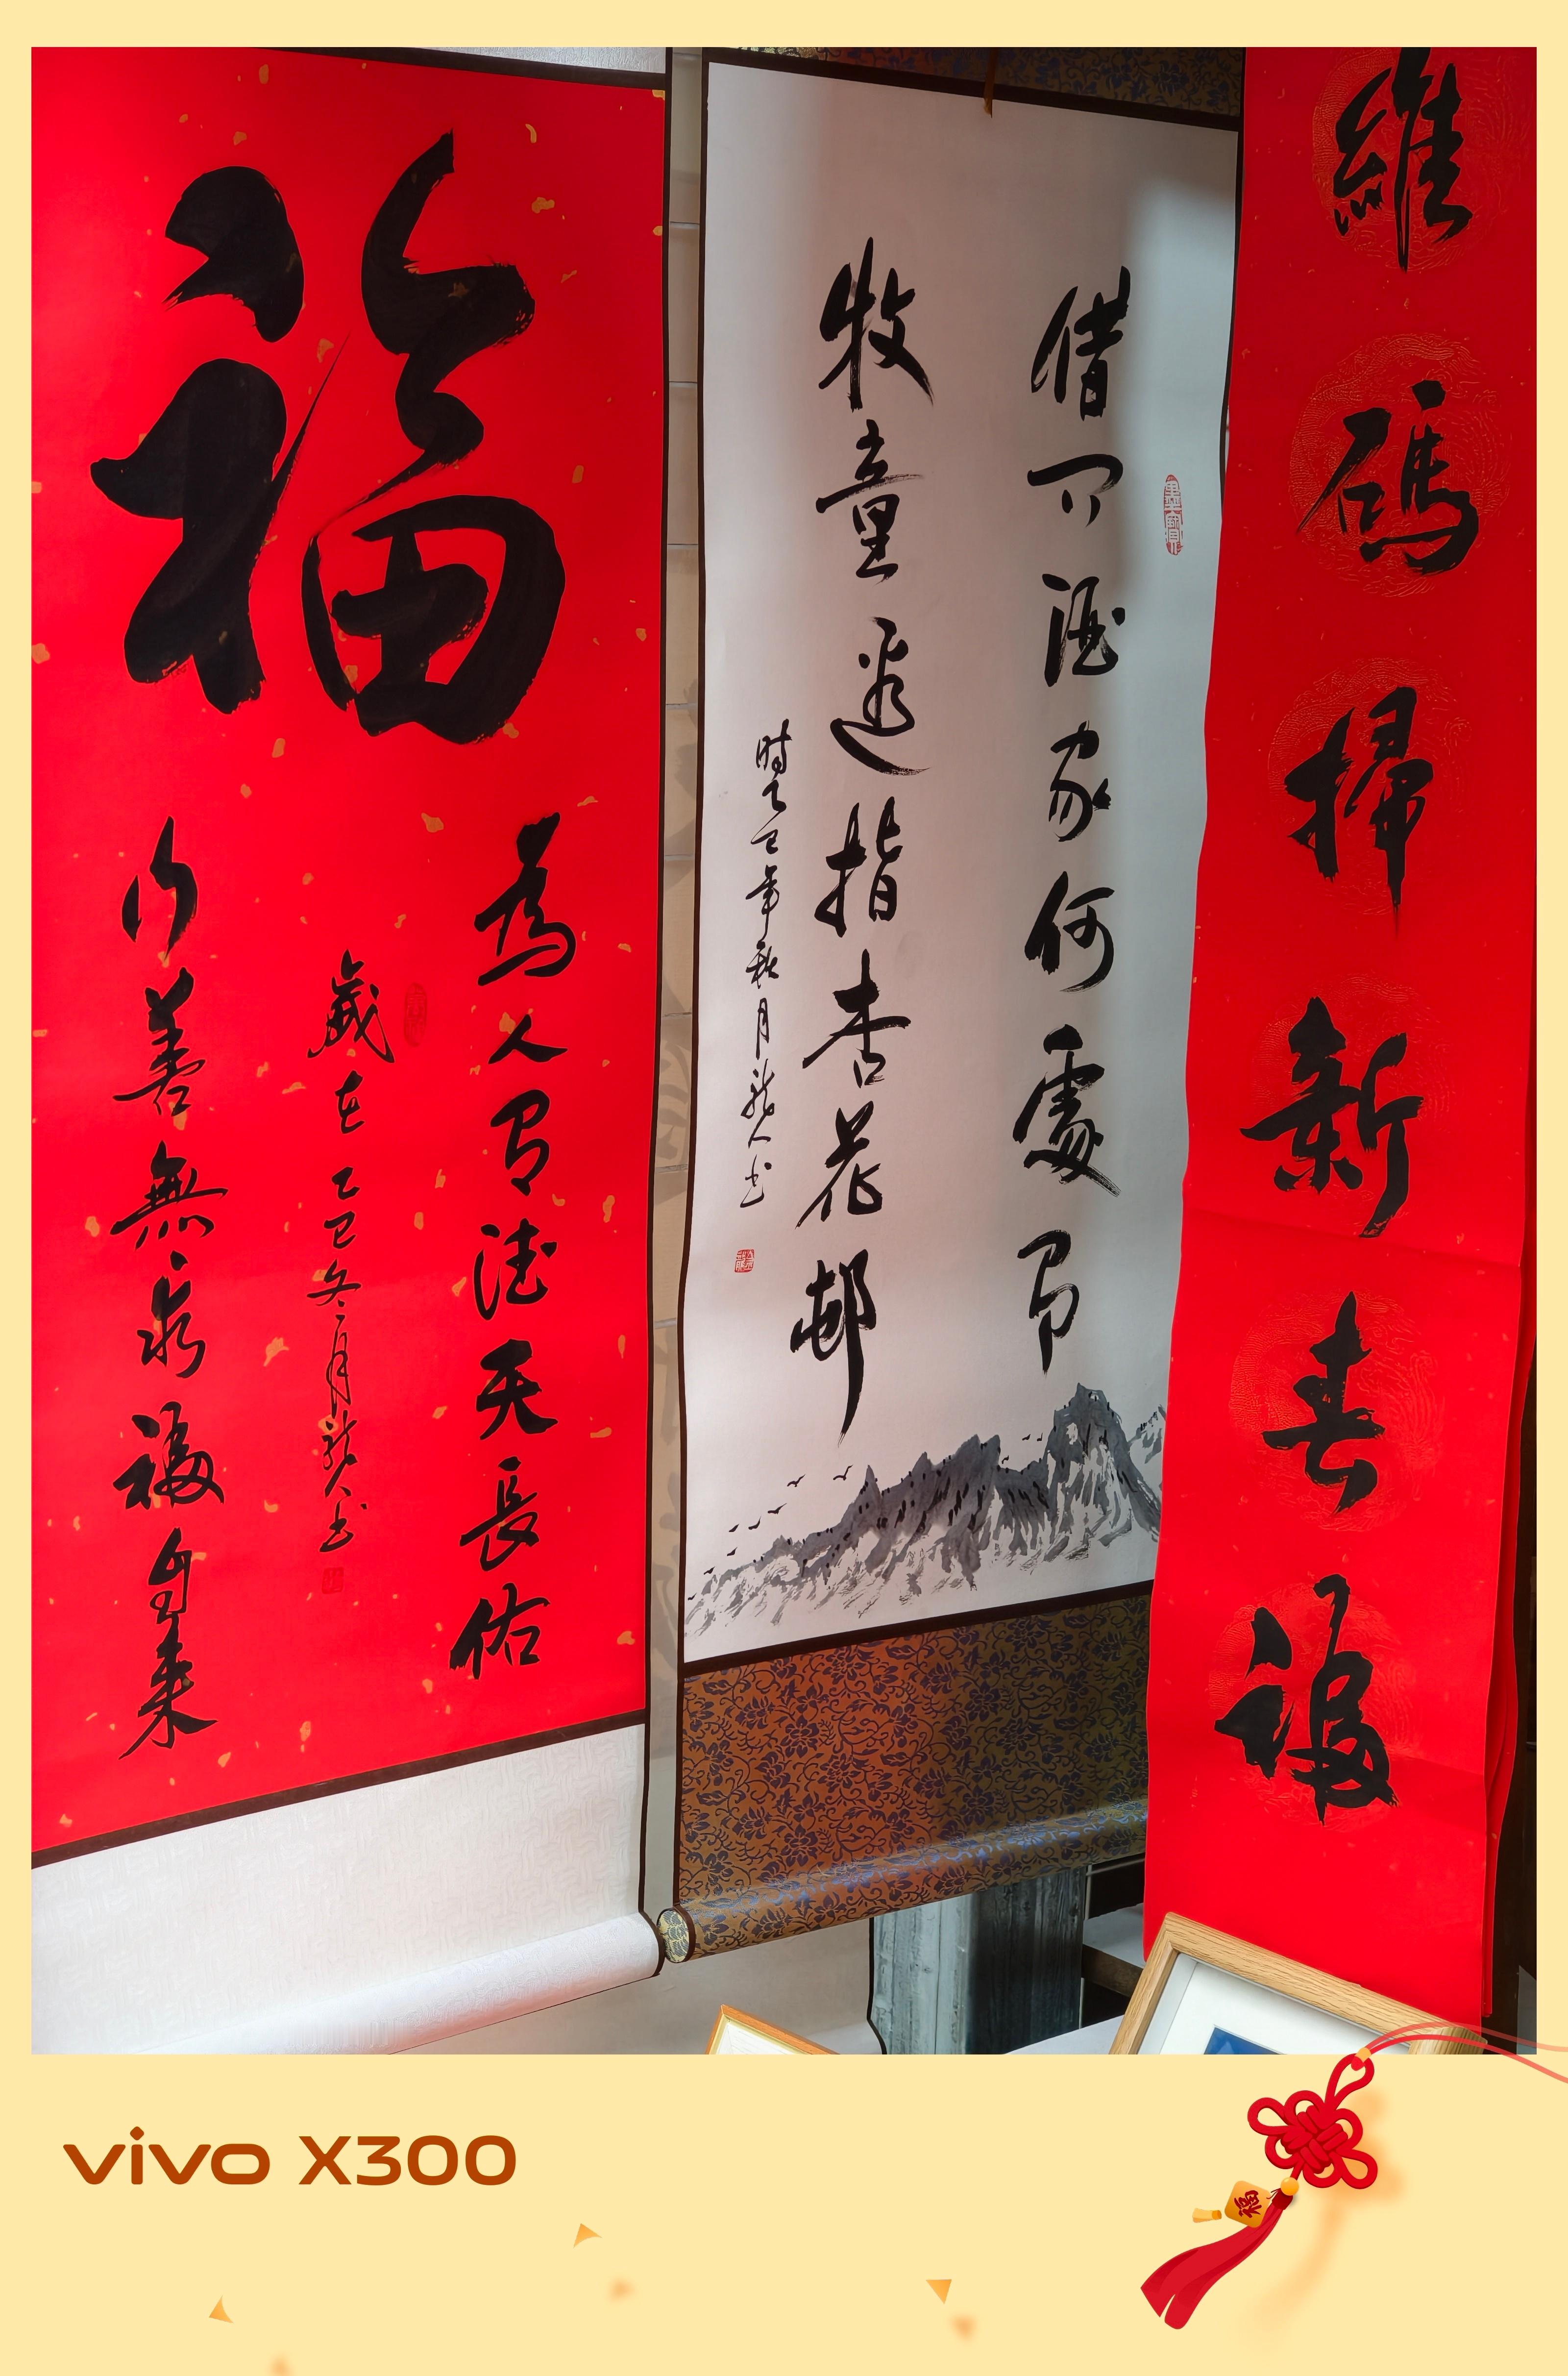 維碼掃新春福
借問酒家何處有
牧童遙指杏花邨
時乙巳年秋月龍人书
墨寶
福
為人有德天長佑
行善無求福自来
歲在乙巳冬月龍人书
vivo X300
福